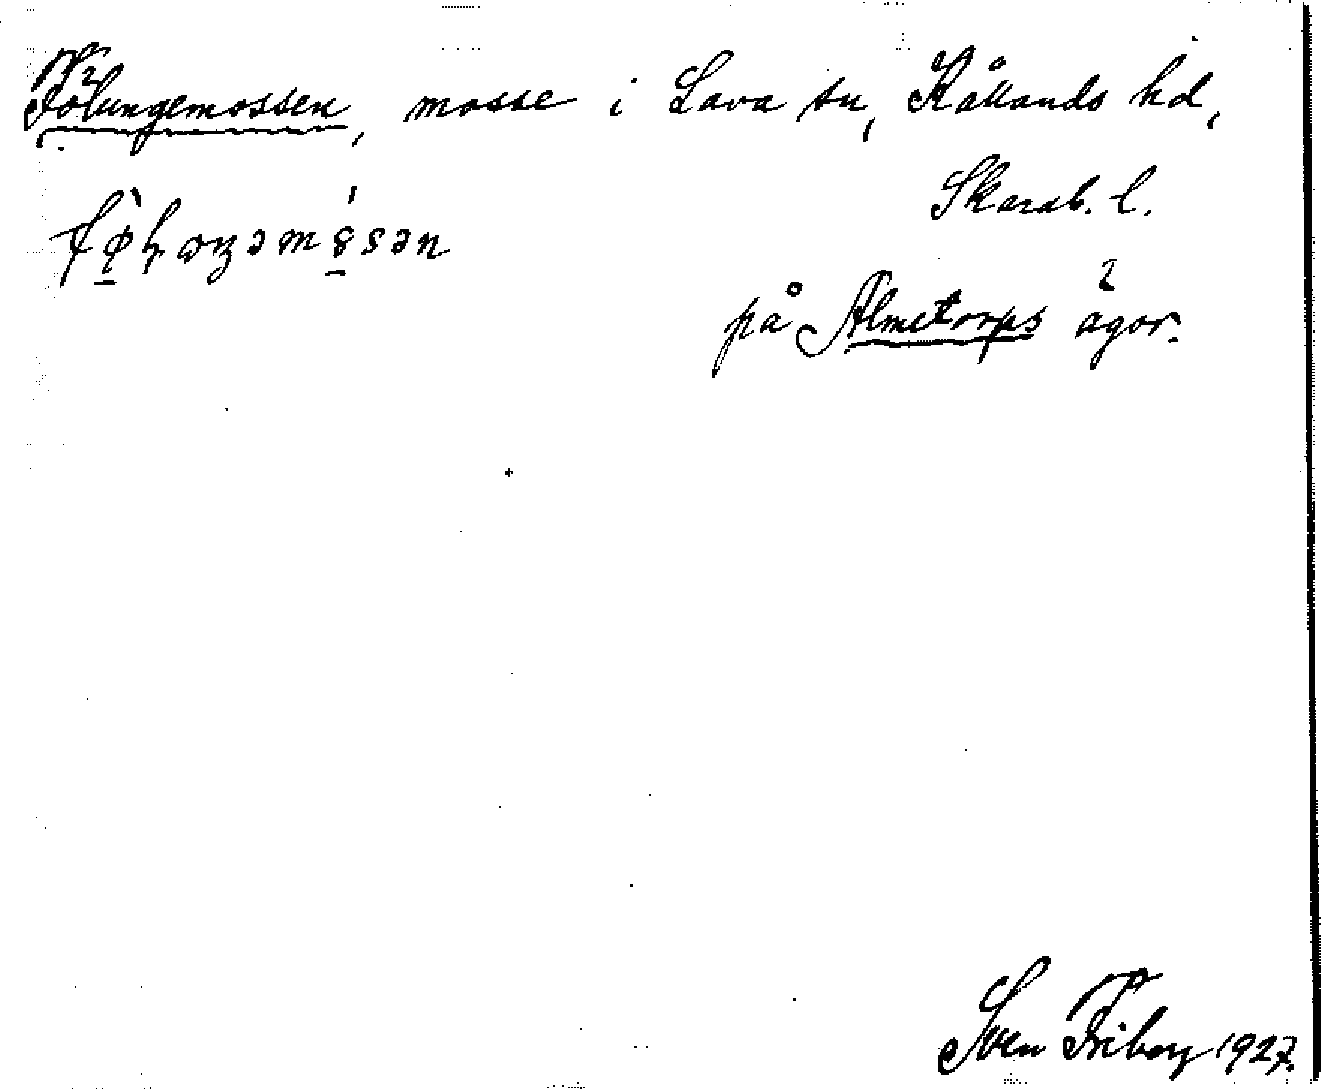 Fölungemossen, mosse i Lava sn, Kållands hd,
Skarab. l.
på Almetorps ägor.
Sven Friberg 1927.